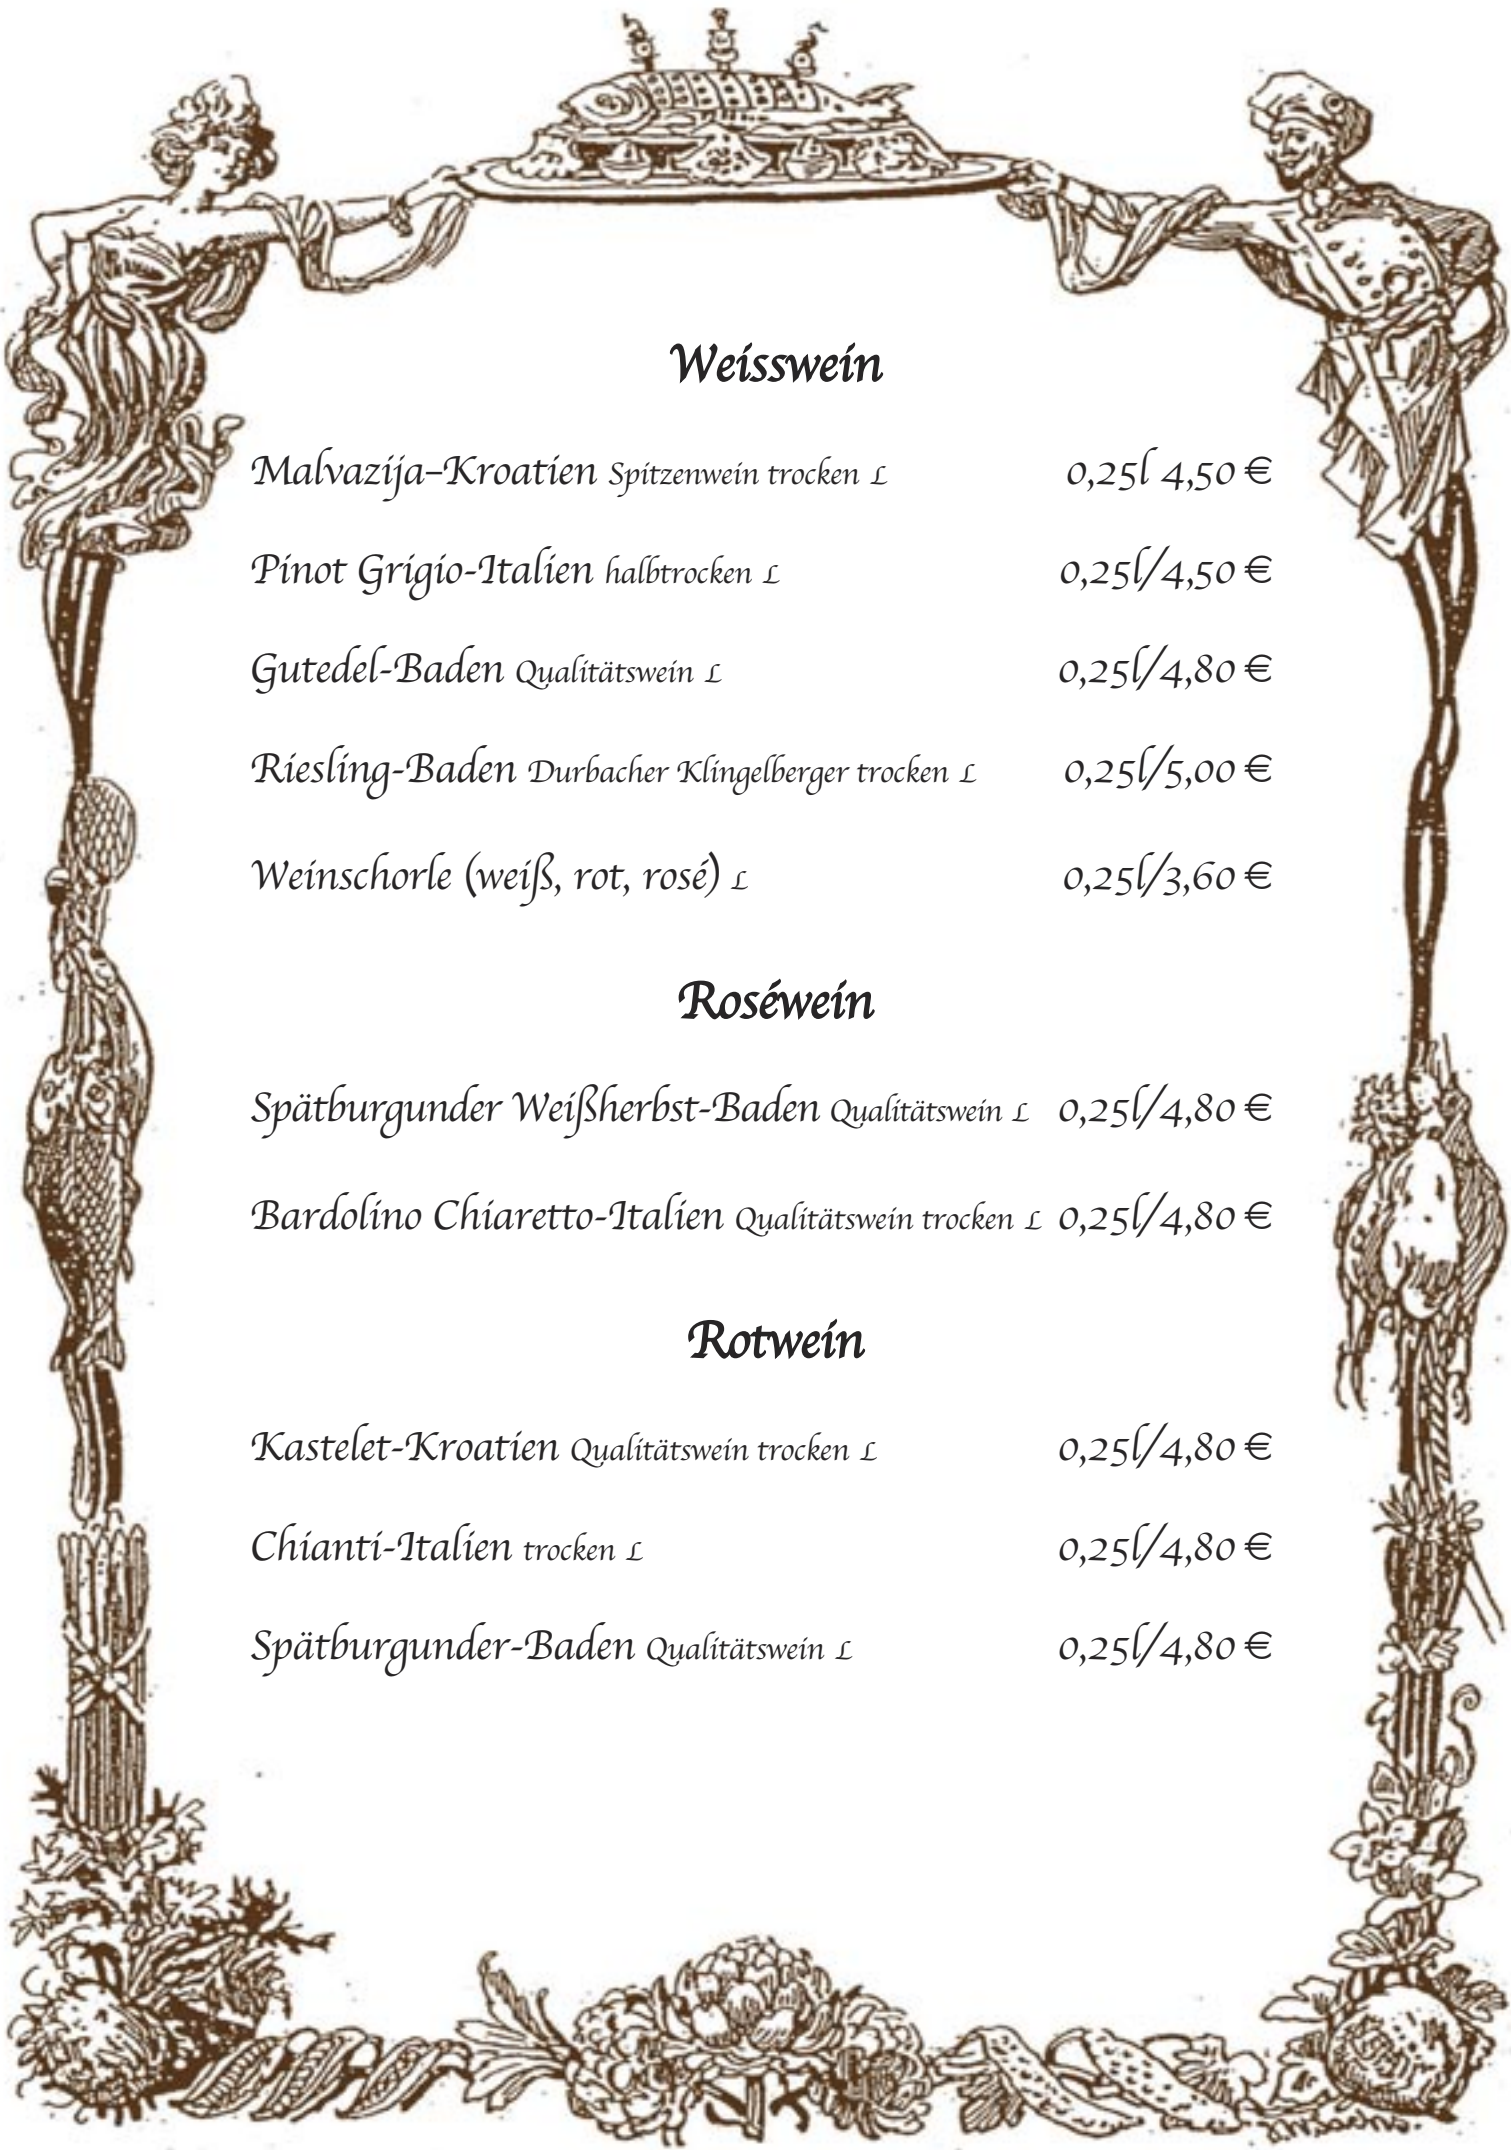 Weisswein
Malvazija–Kroatien Spitzenwein trocken L 0,25l 4,50 €
Pinot Grigio-Italien halbtrocken L 0,25l/4,50 €
Gutedel-Baden Qualitätswein L 0,25l/4,80 €
Riesling-Baden Durbacher Klingelberger trocken L 0,25l/5,00 €
Weinschorle (weiß, rot, rosé) L 0,25l/3,60 €
Roséwein
Spätburgunder Weißherbst-Baden Qualitätswein L 0,25l/4,80 €
Bardolino Chiaretto-Italien Qualitätswein trocken L 0,25l/4,80 €
Rotwein
Kastelet-Kroatien Qualitätswein trocken L 0,25l/4,80 €
Chianti-Italien trocken L 0,25l/4,80 €
Spätburgunder-Baden Qualitätswein L 0,25l/4,80 €